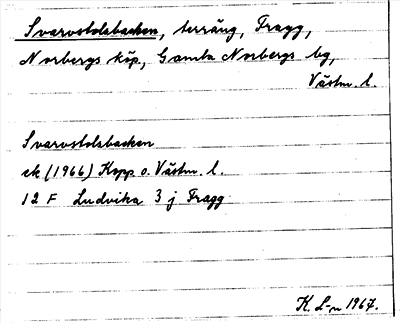 Svarvstolsbacken, terräng, Fragg,
Norbergs köp, Gamla Norbergs bg,
Västm. l.
Svarvstolsbacken
ek (1966) Kopp o. Västm. l.
12 F Ludvika 3 j Fragg
K. L-n 1967.